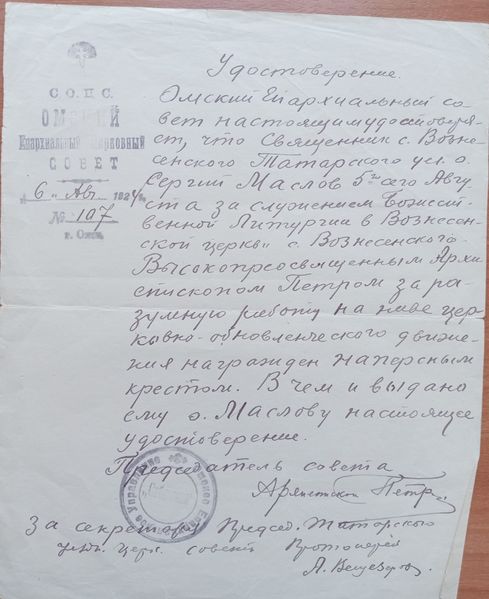 С.О.П.С.
ОМСКИЙ
Епархиальный Церковный
СОВЕТ
„6“ Авг. 1924 г.
№ 107
г. Омск.
Удостоверение.
Омский Епархиальный со
вет настоящим удостоверя
ет, что Священник с. Возне-
сенского Татарского уез. о.
Сергий Маслов 5го сего Авгу
ста за служением Божест-
венной Литургии в Вознесен-
ской церкви с. Вознесенского
Высокопреосвященным Архи
епископом Петром за ра-
зумную работу на ниве цер
ковно-обновленческого движе-
ния награжден наперсным
крестом. В чем и выдано
ему о. Маслову настоящее
удостоверение.
Председатель совета
Петр
За секретаря Председ. Татарского
уезд. церк. совета Протоиерей